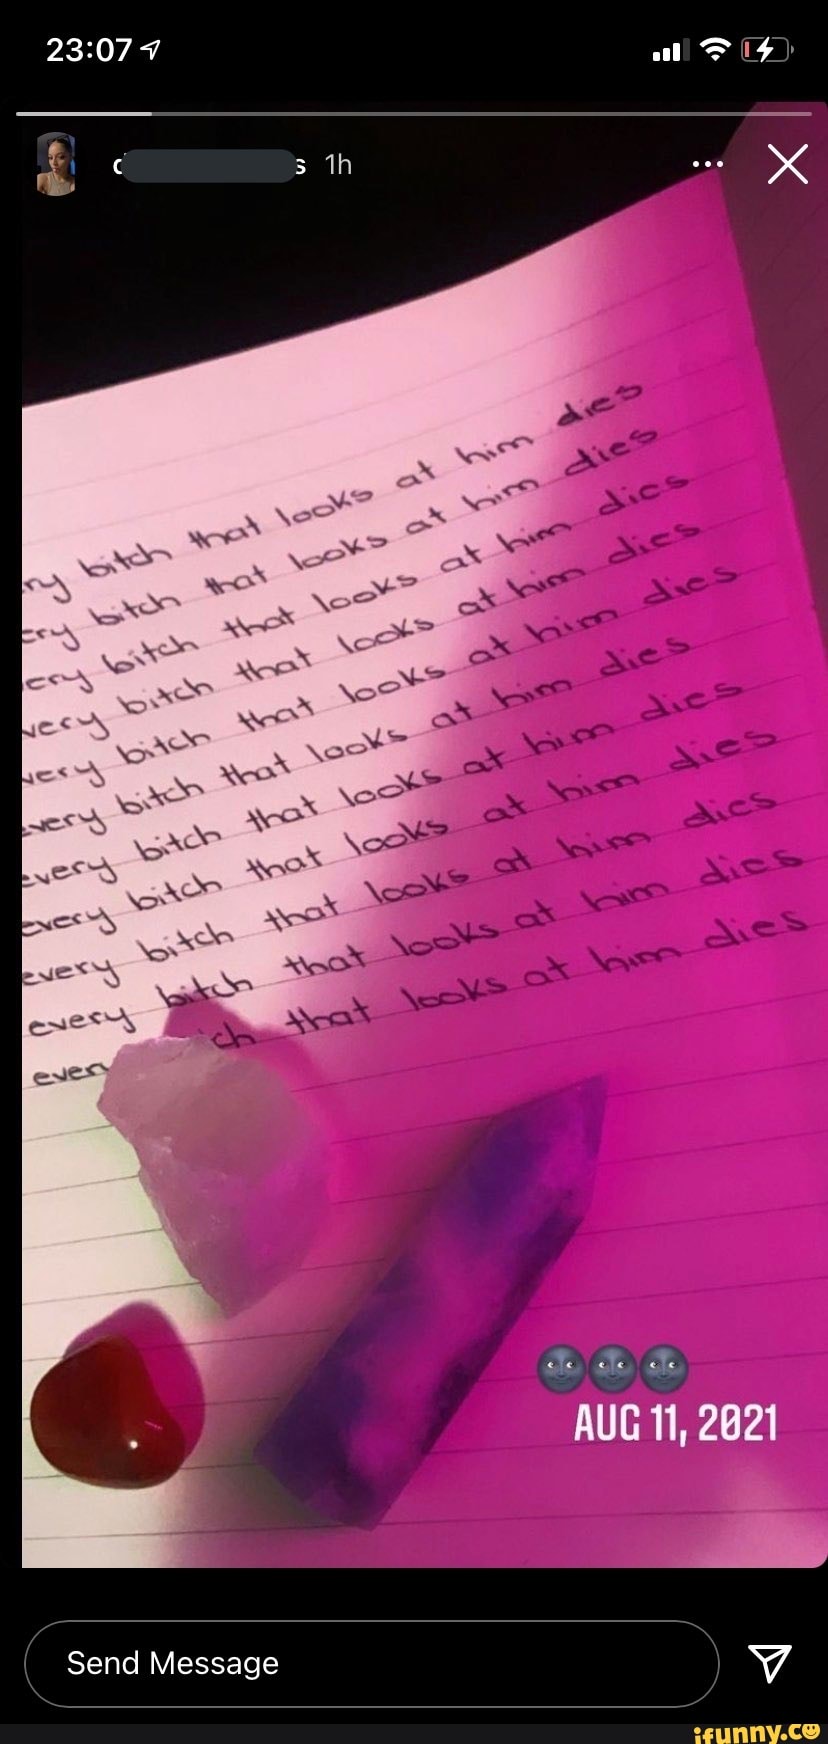 23:07
d s 1h
ry bitch that looks at him dies
ery bitch that looks at him dies
ery bitch that looks at him dies
very bitch that looks at him dies
very bitch that looks at him dies
every bitch that looks at him dies
every bitch that looks at him dies
every bitch that looks at him dies
every bitch that looks at him dies
every bitch that looks at him dies
every ch that looks at him dies
AUG 11, 2021
Send Message
ifunny.co